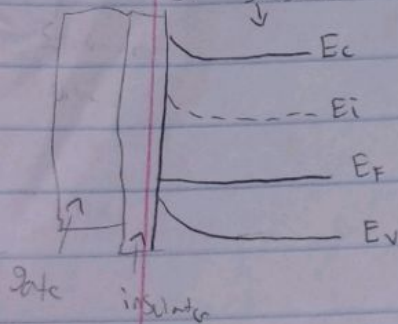 Ec
Ei
EF
Ev
gate
insulator